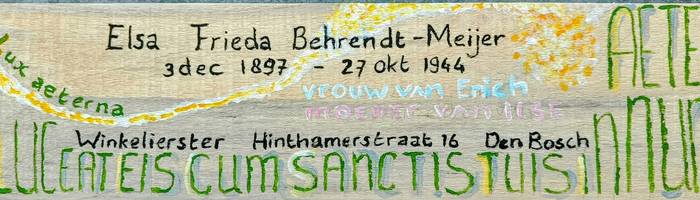 Elsa Frieda Behrendt-Meijer
3 dec 1897 - 27 okt 1944
lux aeterna
vrouw van Erich
moeder van Ilse
AETE
Winkelierster Hinthamerstraat 16 Den Bosch
LUCEAT EIS CUM SANCTIS TUIS IN